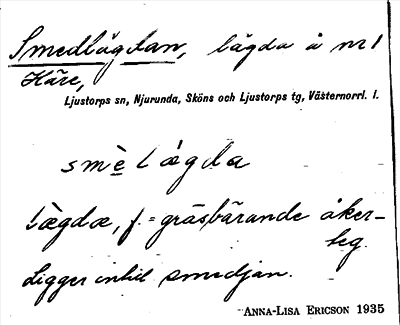 Smedlägdan, lägda å nr 1
Häre,
Ljustorps sn, Njurunda, Sköns och Ljustorps tg, Västernorrl. l.
smè l ágda
lègdæ, f. = gräsbärande åker-
teg.
Ligger intill smedjan.
ANNA-LISA ERICSON 1935